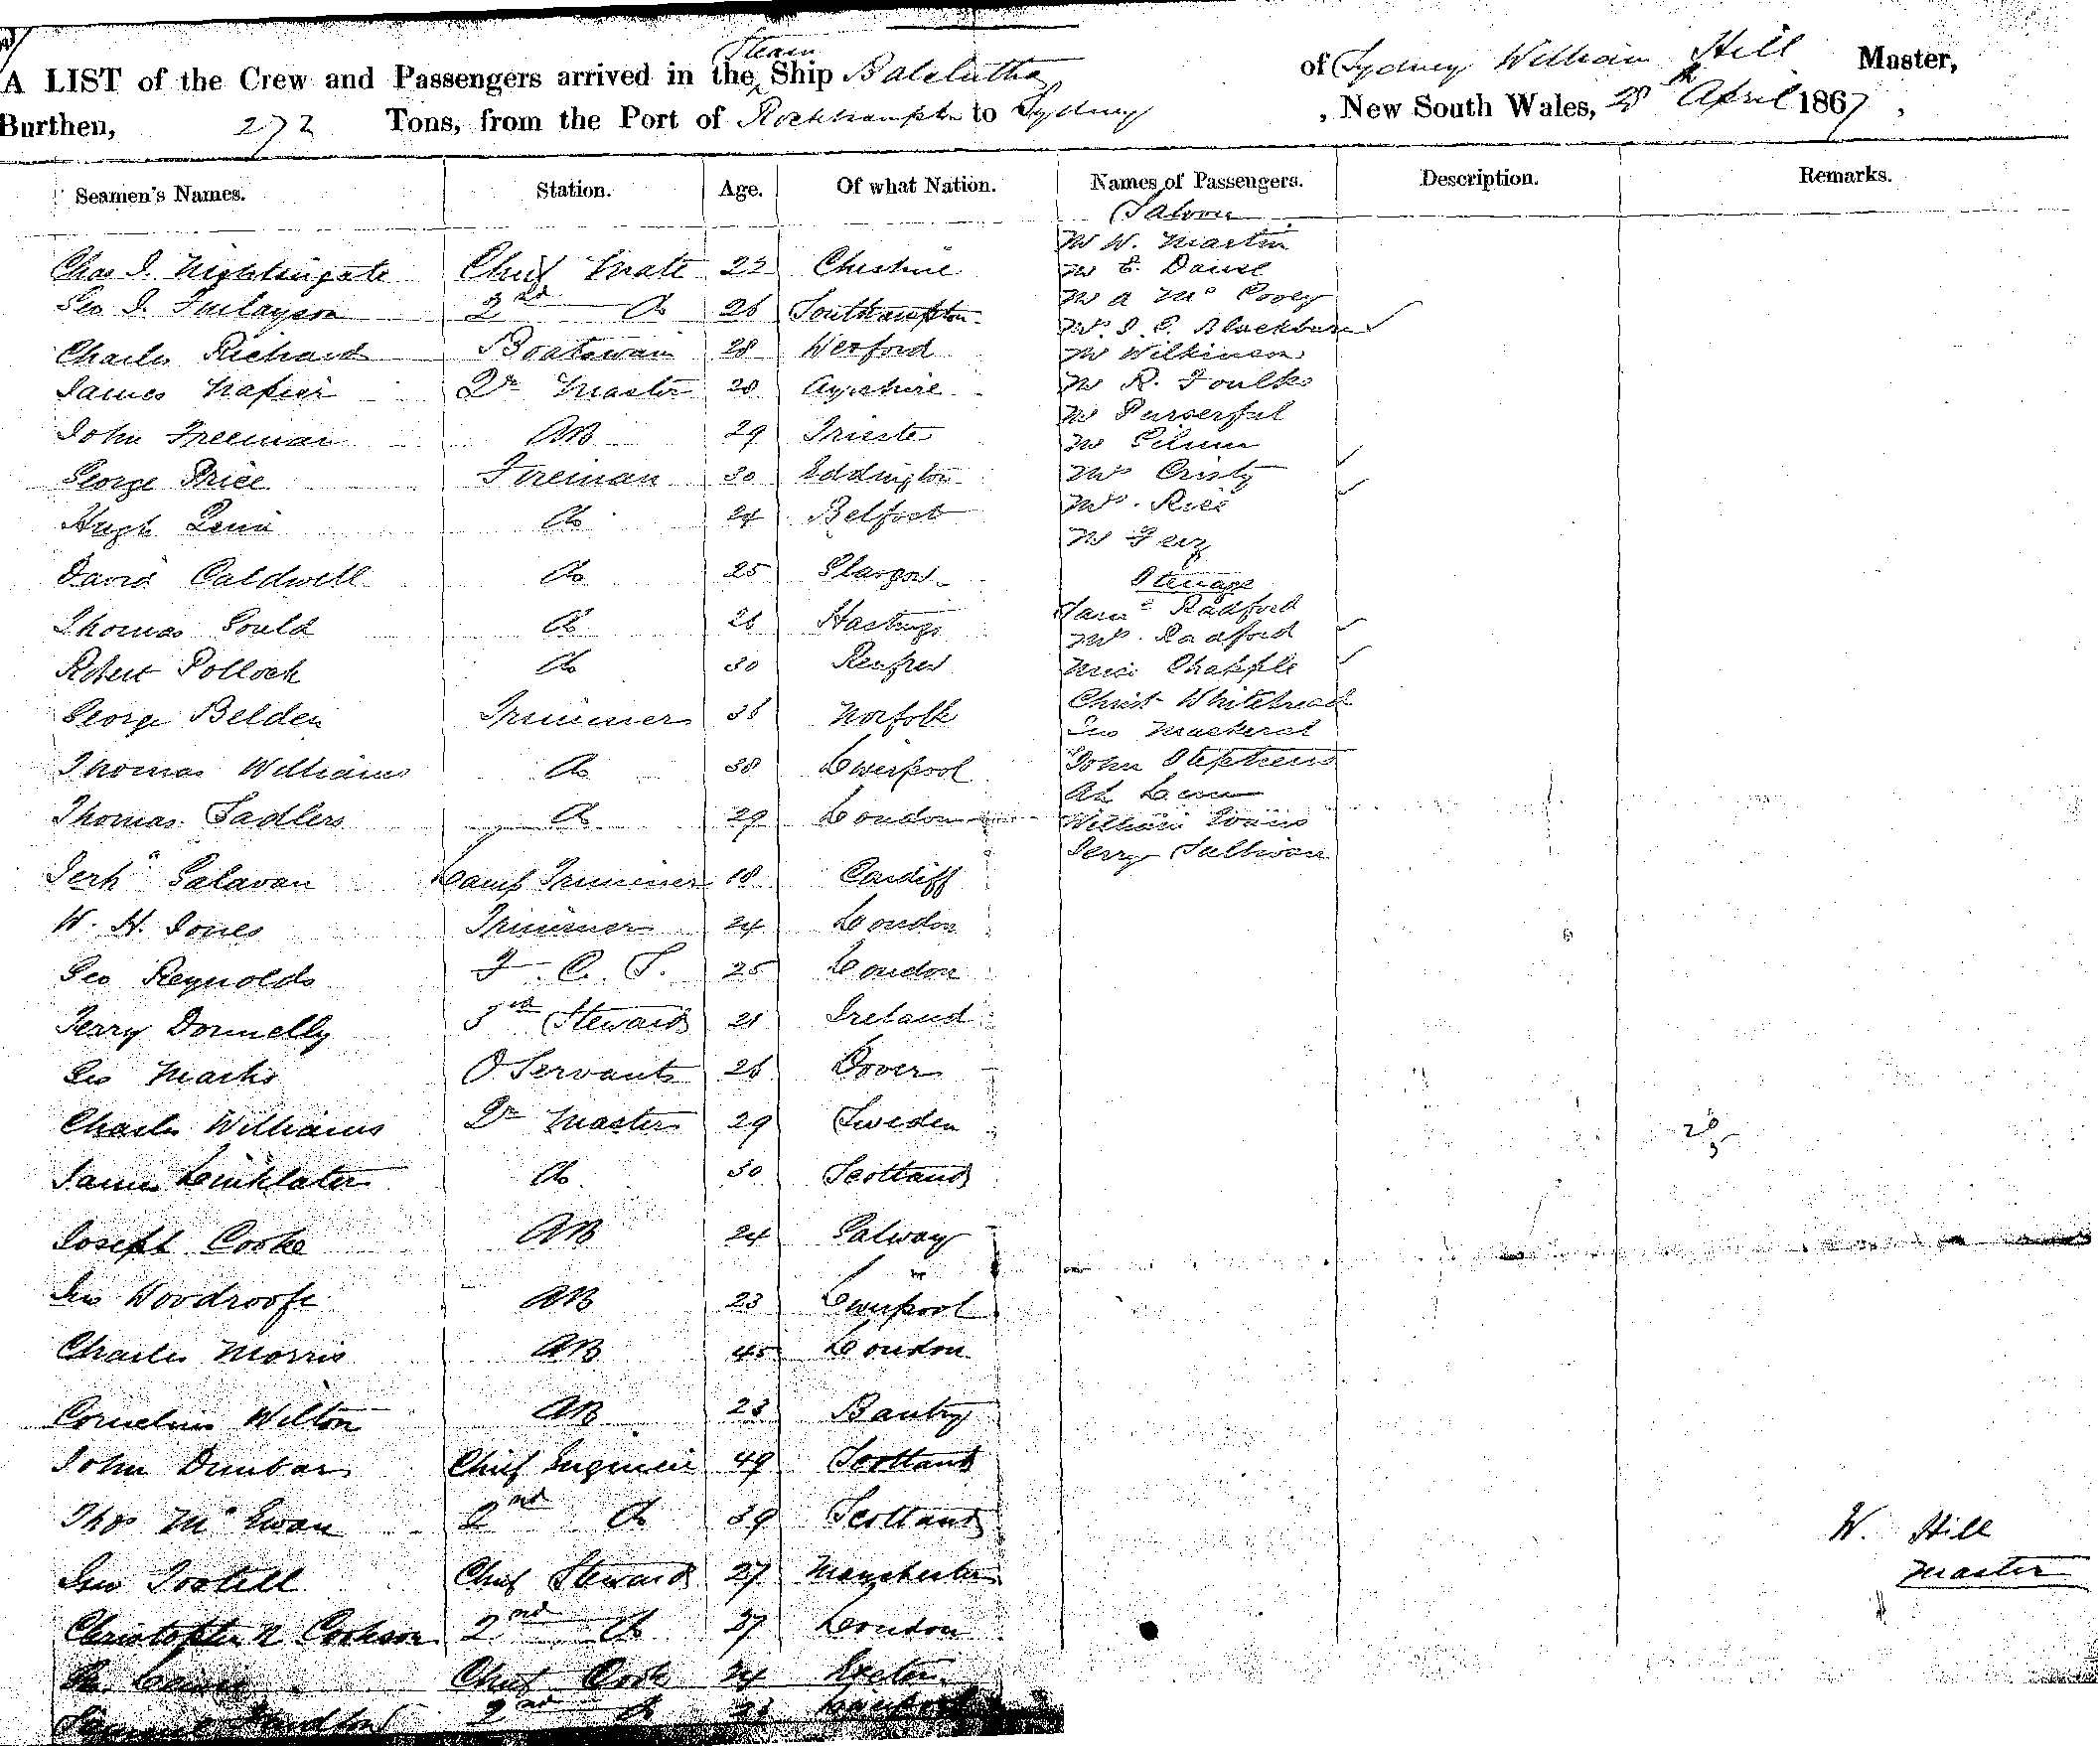 A LIST of the Crew and Passengers arrived in the Steam Ship Balclutha of Sydney William Hill Master,
Burthen, 272 Tons, from the Port of Rockhampton to Sydney, New South Wales, 28th April 1867,
Seamen's Names. Station. Age. Of what Nation. Names of Passengers. Description. Remarks.
Saloon
Mr W. Martin
Chas I. Nightingale Chief Mate 22 Cheshire
Mr E.
Geo I. Finlayson 2nd Do 26 Southampton
Mr A Mc
Mrs I. C. Blackburn
Charles Richard Boatswain 28 Wexford
Mr Wilkinson
James Napier Qr Master 28 Ayrshire
Mr R. Foulks
Mr Purserful
John Freeman AB 29 Trieste
Mr
George Price Fireman 30 Eddington
Mrs Cristy
Mrs. Rice
Hugh Do 24 Belfast
Mr
David Caldwell Do 25 Glasgow
Steerage
Radford
Thomas Gould Do 26 Hastings
Mrs. Radford
Robert Pollock Do 30 Renfrew
Miss Chapple
Christ Whitebread
George Belden Trimmer 36 Norfolk
Geo Mackeral
Thomas Williams Do 38 Liverpool
John Stephens
Ah
Thomas Sadlers Do 29 London
William Evans
Jerry Sullivan
Jerh Galavan Lamp Trimmer 18 Cardiff
W. H. Jones Trimmer 24 London
Geo Reynolds F. C. S. 25 London
Terry Donnelly 3rd Steward 21 Ireland
Geo Marks O. Servant 26 Dover
Charles Williams Qr Master 29 Sweden
James Linklater Do 30 Scotland
Joseph Cooke AB 24 Galway
Jno Woodroofe AB 23 Liverpool
Charles Morris AB 45 London
Cornelius Wilton AB 23 Bantry
John Dunbar Chief Engineer 49 Scotland
Thos Mc Ewan 2nd Do 39 Scotland
W. Hill
Master
Jno Tootell Chief Steward 27 Manchester
Christopher N Cookson 2nd Do 37 London
Chief Cook 24 Exeter
2nd Do 23 Liverpool